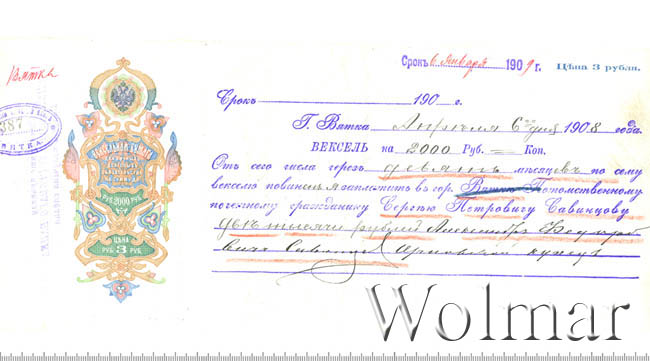 Срокъ 6 января 1909 г. Цѣна 3 рубля.
Вятка
387
ВЯТКА
РУБ. 2000 РУБ.
ЦѢНА
РУБ. 3 РУБ.
Срокъ 190 г.
Г. Вятка Апрѣля 6 дня 1908 года.
ВЕКСЕЛЬ на 2000 Руб. = Коп.
Отъ сего числа черезъ девять мѣсяцевъ по сему
векселю повиненъ я заплатить въ гор. Вяткѣ Потомственному
почетному гражданину Сергѣю Петровичу Савинцову
двѣ тысячи рублей Александръ Федоро
вичъ купецъ
Wolmar